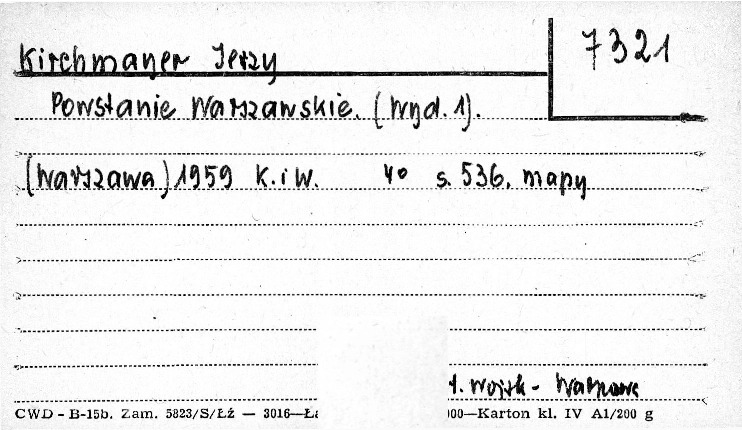 7321
Kirchmayer Jerzy
Powstanie Warszawskie. (Wyd. 1).
(Warszawa) 1959 K. i W. 4° s. 536. mapy
t. Wojsk - Warszawa
CWD - B-15b. Zam. 5823/S/Łź — 3016—Ła 000—Karton kl. IV A1/200 g